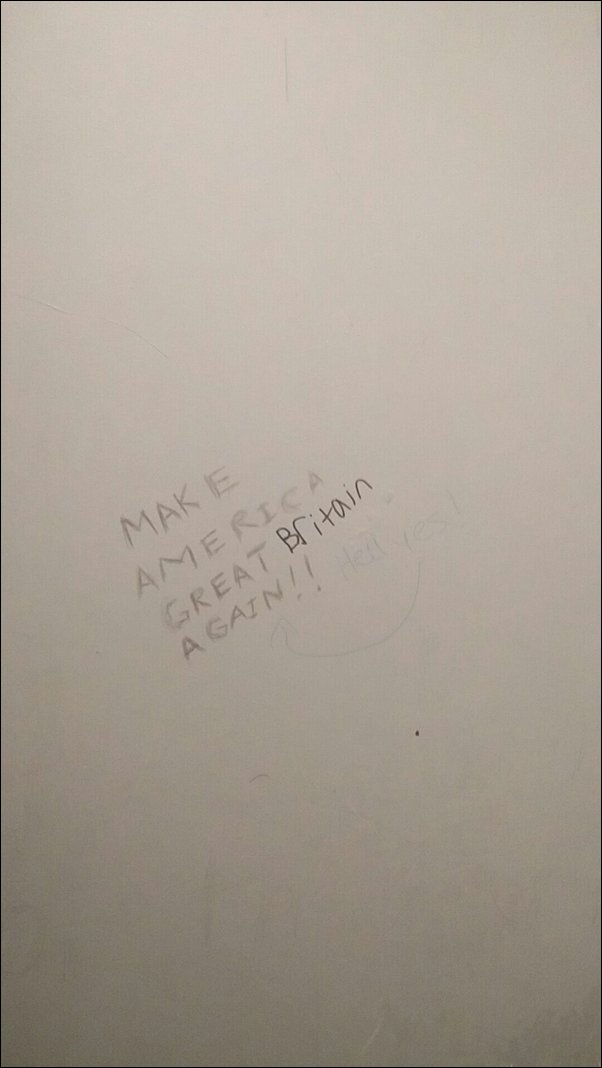 MAKE
AMERICA
GREAT Britain
AGAIN!! Hell yes!